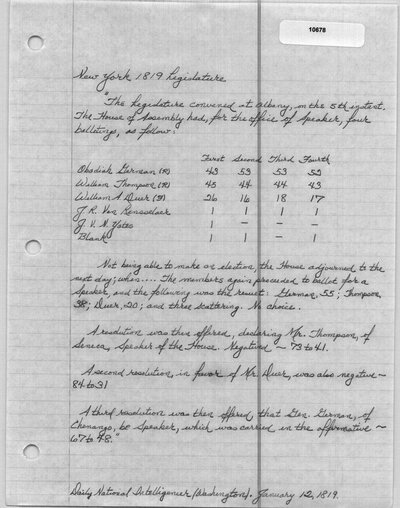 10678
New York 1819 Legislature
"The Legislature convened at Albany, on the 5th instant.
The House of Assembly had, for the office of Speaker, four
ballotings, as follow:
First Second Third Fourth
Obadiah German (R) 43 53 53 52
William Thompson (R) 45 44 44 43
William A Duer (F) 26 16 18 17
J. R. Van Rensselaer 1 1 1 1
J. V. N. Yates 1 - - -
Blank 1 1 1 1
Not being able to make an election the House adjourned to the
next day; when.... The members again proceeded to ballot for a
Speaker, and the following was the result: German, 55; Thompson,
38; Duer, 20; and three scattering. No choice.
A resolution was then offered, declaring Mr. Thompson, of
Seneca, Speaker of the House. Negatived - 73 to 41.
A second resolution, in favor of Mr. Duer, was also negative -
84 to 31
A third resolution was then offered that Gen. German, of
Chenango, be Speaker, which was carried in the affirmative -
67 to 48."
Daily National Intelligencer (Washington). January 12, 1819.